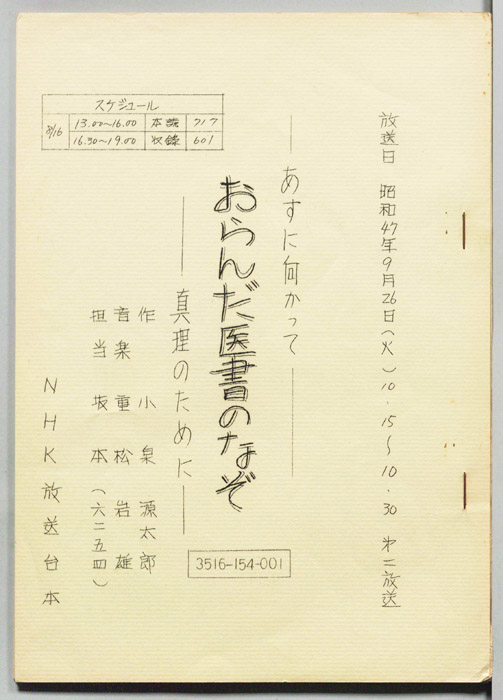 放送日 昭和47年9月26日(火)10.15〜10.30 第二放送
スケジュール
8/16 13.00〜16.00 本読 717
16.30〜19.00 収録 601
―あすに何かって―
おらんだ医書のなぞ
―真理のために―
作 小泉源太郎
音楽 重松岩雄
担当 坂本(六二五四)
3516-154-001
NHK放送台本